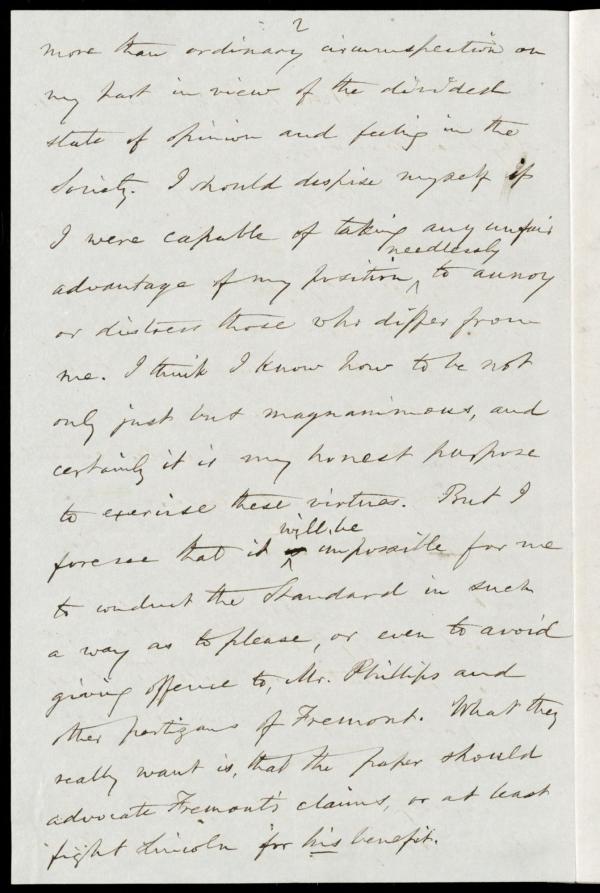 2
more than ordinary circumspection on
my part in view of the divided
state of opinion and feeling in the
Society. I should despise myself if
I were capable of taking any unfair
needlessly
advantage of my position, ^ to annoy
or distress those who differ from
me. I think I know how to be not
only just but magnanimous, and
certainly it is my honest purpose
to exercise these virtues. But I
will be
foresee that it ^ impossible for me
to conduct the Standard in such
a way as to please, or even to avoid
giving offense to, Mr. Phillips and
other partizans of Fremont. What they
really want is, that the paper should
advocate Fremont's claims, or at least
fight Lincoln for his benefit.